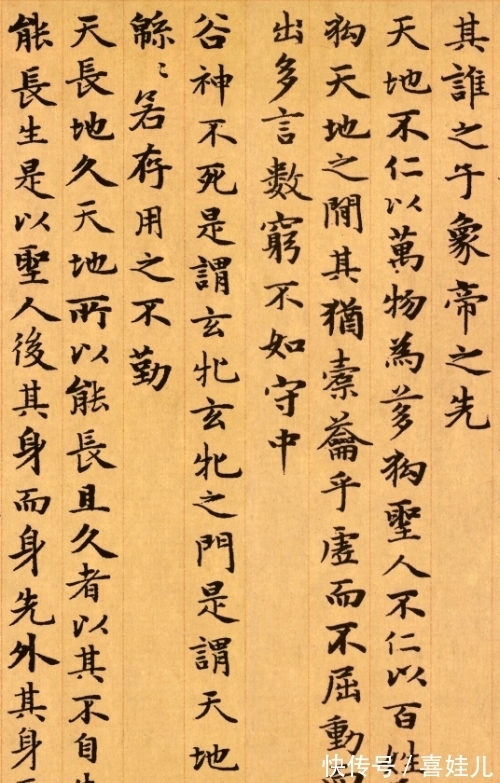 其誰之子象帝之先
天地不仁以萬物為芻狗聖人不仁以百姓
狗天地之間其猶橐籥乎虛而不屈動
出多言數窮不如守中
谷神不死是謂玄牝玄牝之門是謂天地
緜〻若存用之不勤
天長地久天地所以能長且久者以其不自
能長生是以聖人後其身而身先外其身
快传号/喜娃儿